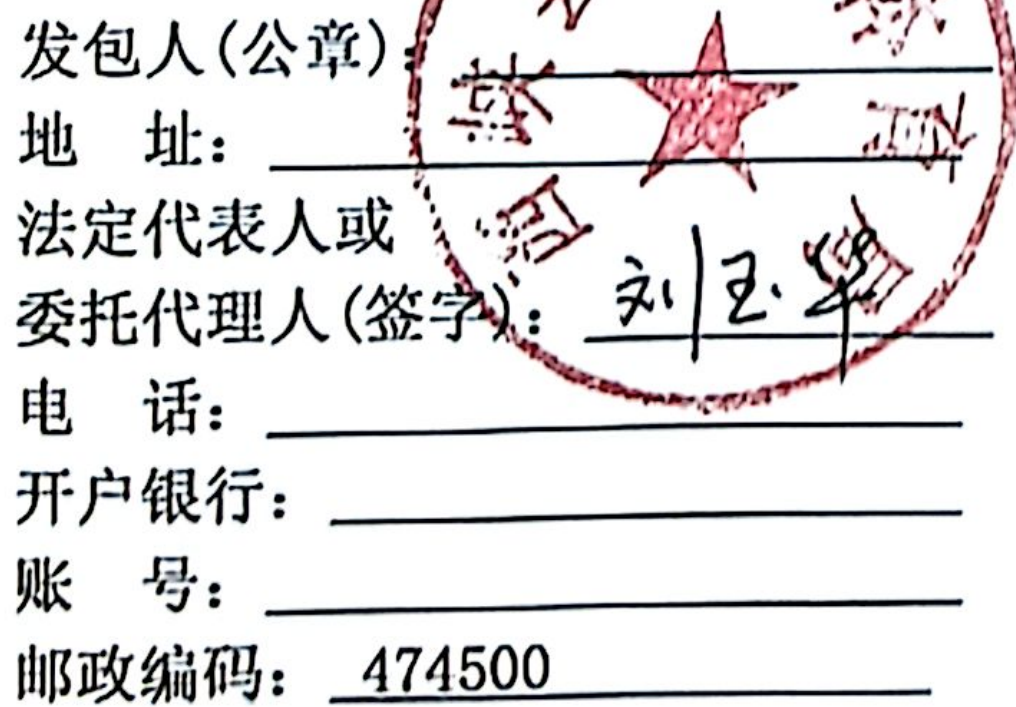 发包人(公章):
地 址:
法定代表人或
委托代理人(签字): 刘玉华
电 话:
开户银行:
账 号:
邮政编码: 474500